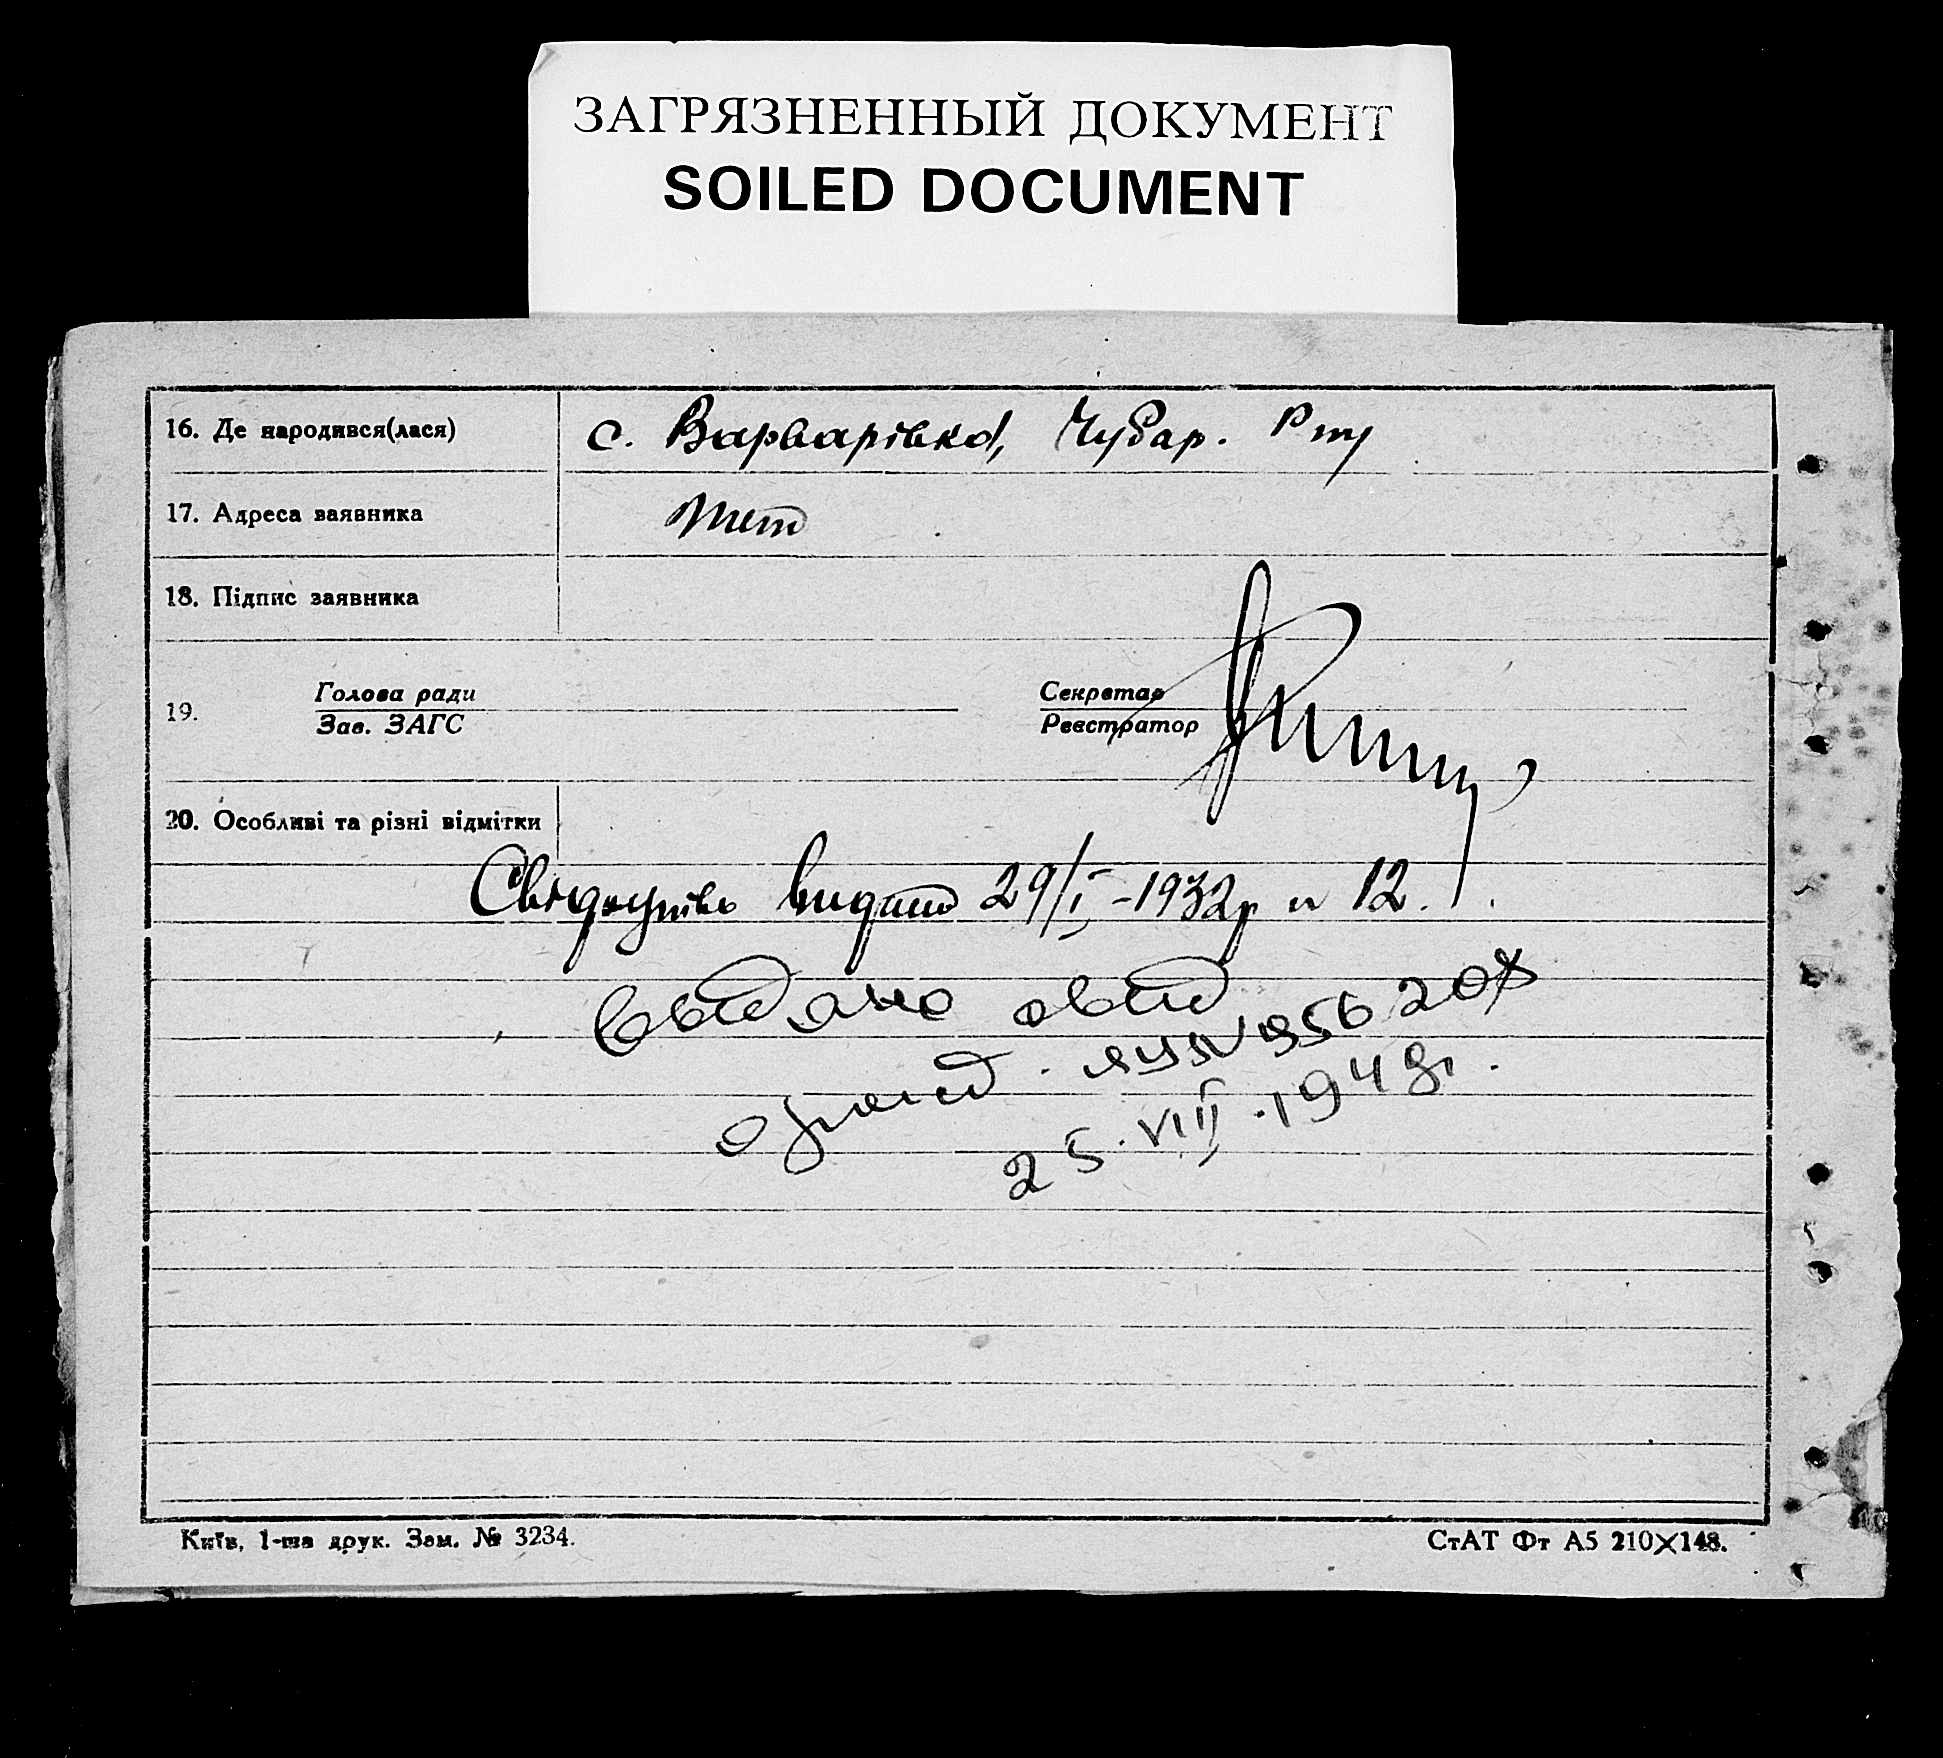 ЗАГРЯЗНЕННЫЙ ДОКУМЕНТ
SOILED DOCUMENT
16. Де народився(лася) с. Варварівка, Чубар. Р-ну
17. Адреса заявника
18. Підпис заявника
Голова ради Секретар
19.
Зав. ЗАГС Реєстратор
20. Особливі та різні відмітки
Свідоцтво видано 29/I-1932р № 12.
Выдано свид
25.VIII.1948г.
Київ, 1-ша друк. Зам. № 3234. СтАТ Фт А5 210×148.